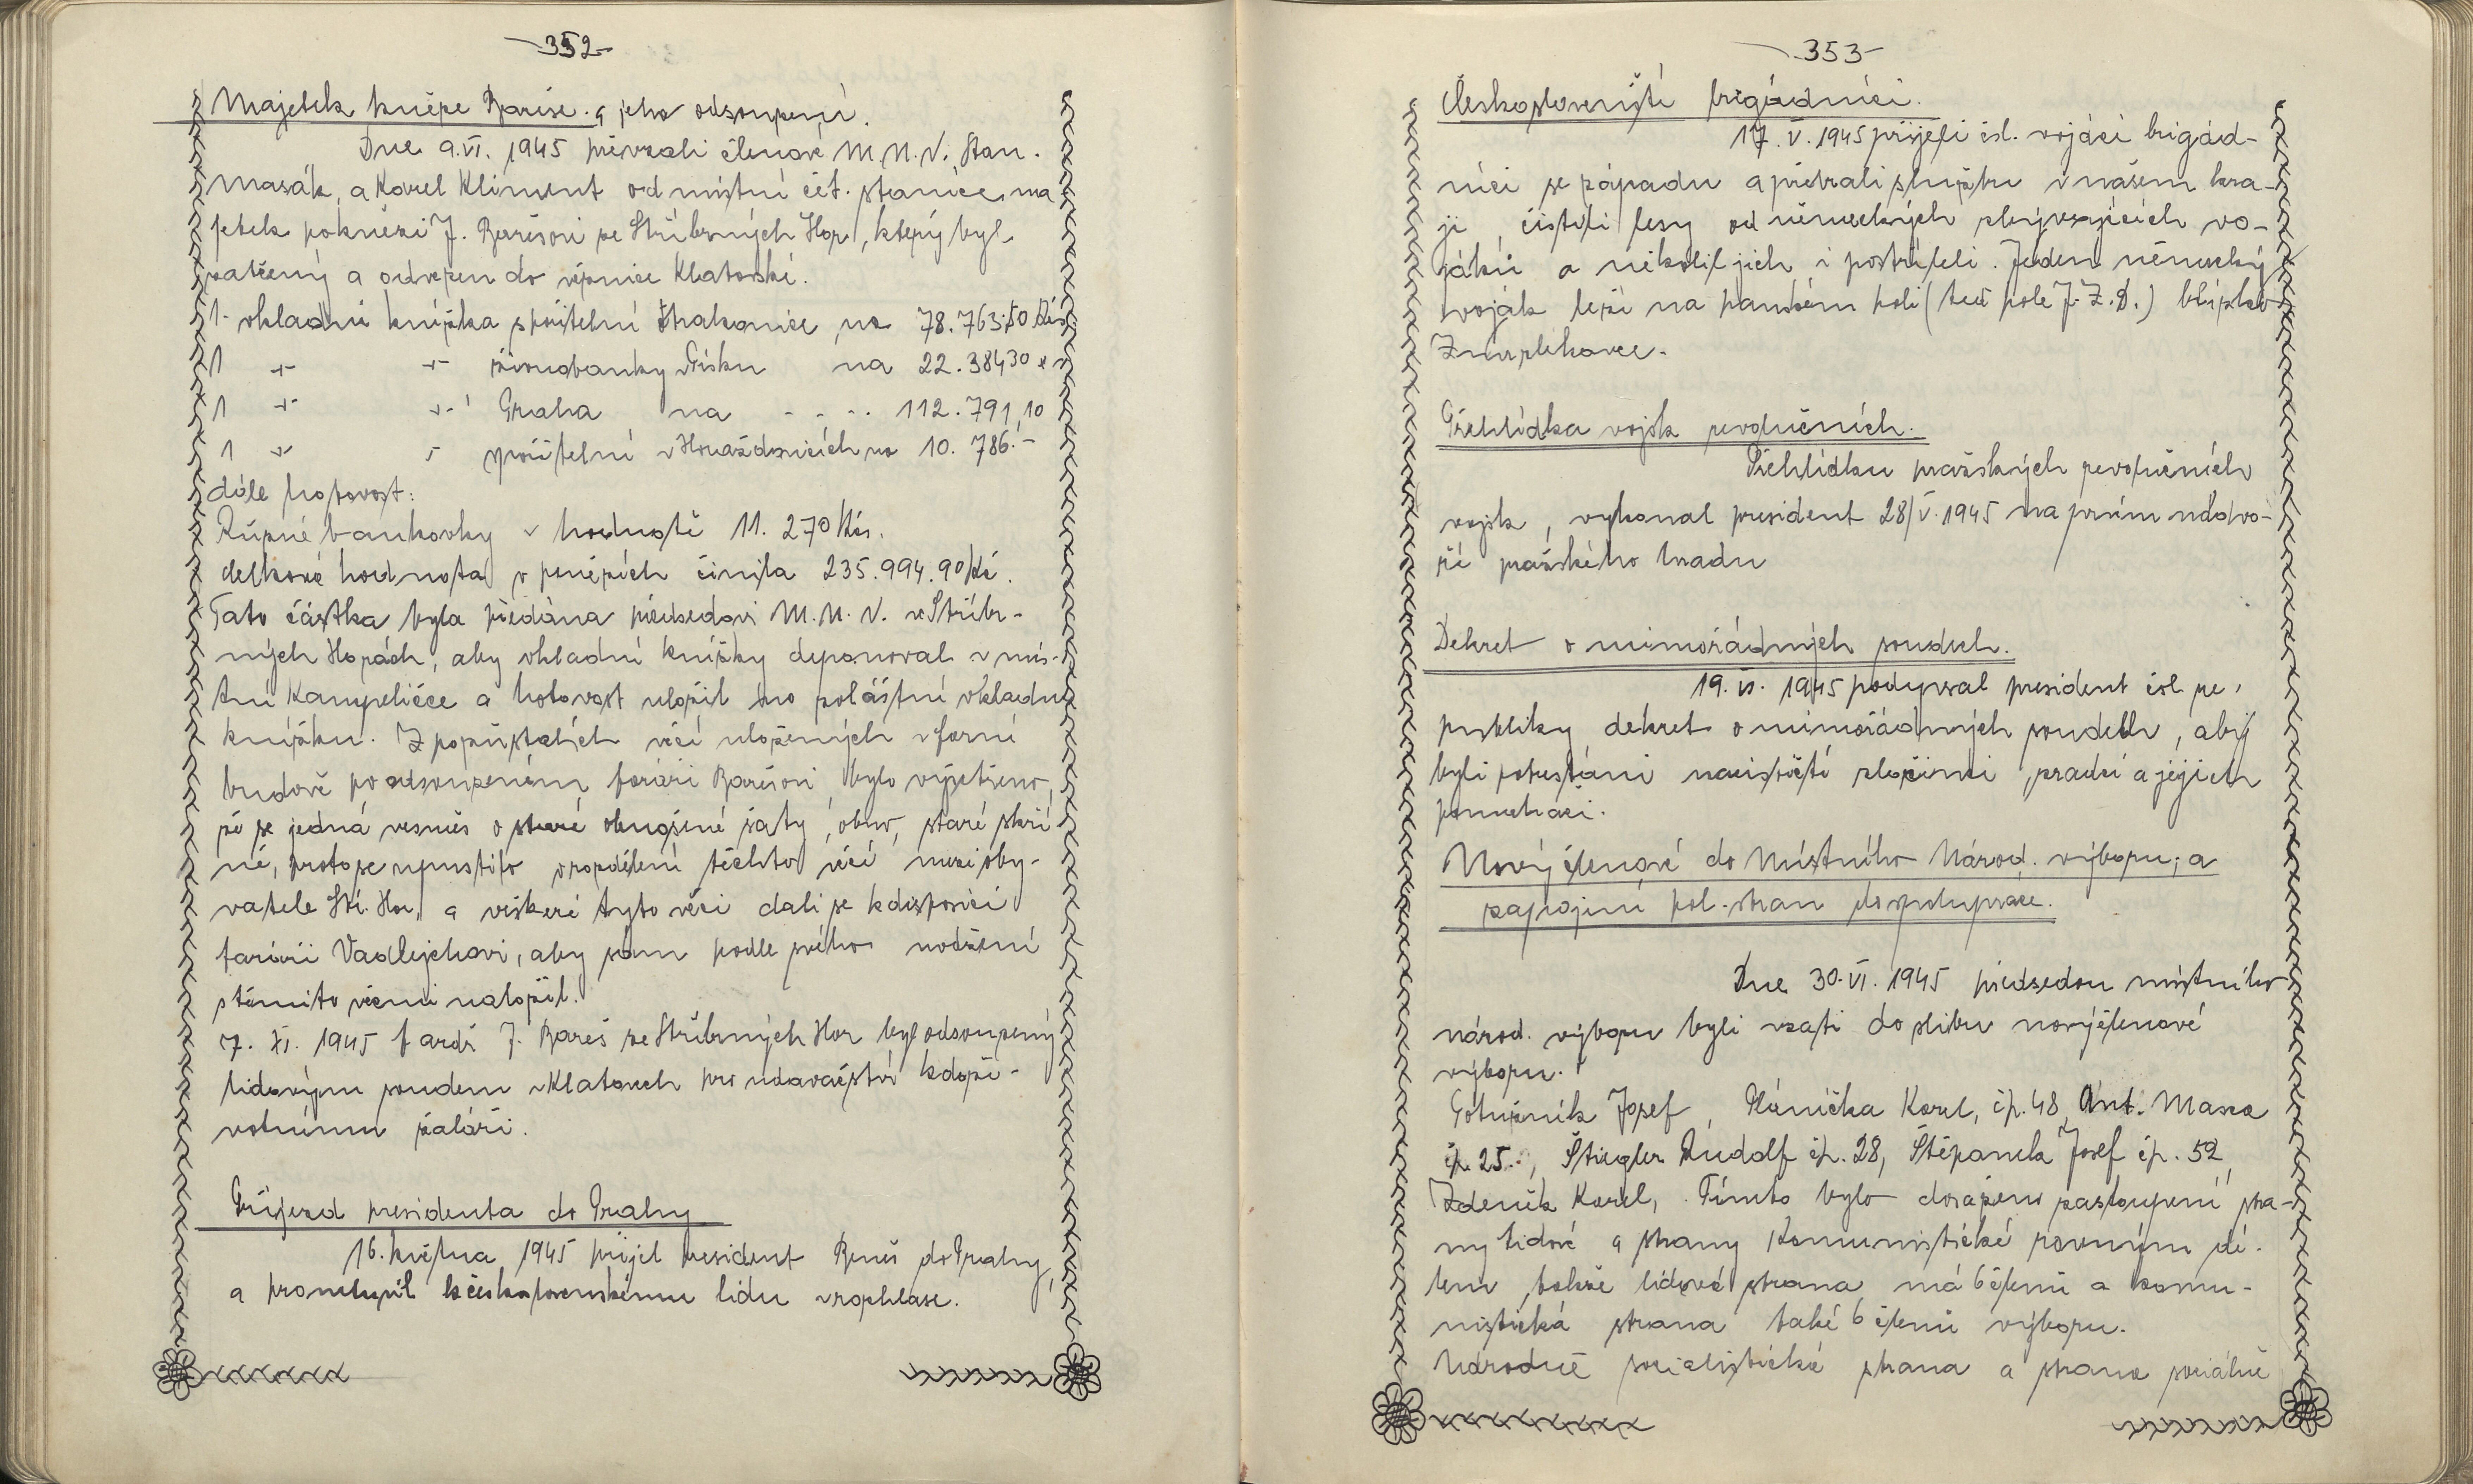 -352-
Majetek kněze Bareše. a jeho odsouzení.
Dne 9.VI. 1945 převzali členové M.N.V. Stan.
Masák, a Karel Kliment od místní čet. stanice, ma
jetek po knězi J. Barešovi ze Stříbrných Hor, který byl
zatčený a odvezen do věznice Klatovské.
1. vkladní knížka spořitelní Strakonice na 78.763,50 Kčs
1 -"- -"- živnobanky v Písku na 22.384 30 " "
1 -"- -"- Praha na - - - - 112.791,10
1 " " spořitelní v Horažďovicích na 10.786.-
dále hotovost:
Různé bankovky v hodnotě 11.270 Kčs.
celková hodnota v penězích činila 235.994.90 Kč.
Tato částka byla předána předsedovi M.N.V. ve Stříbr-
ných Horách, aby vkladní knížky deponoval v mís-
tní Kampeličce a hotovost uložil na zvláštní vkladní
knížku. Z pozůstalých věcí uložených v farní
budově po odsouzeném faráři Barešovi, bylo vyšetřeno,
že se jedná vesměs o staré obnošené šaty, obuv, staré skří
ně, proto se upustilo o rozdělení těchto věcí mezi oby-
vatele Stř. Hor, a veškeré tyto věci dali se k disposici
faráři Vadlejchovi, aby sám podle svého uvážení
s těmito věcmi naložil.
7. XI. 1945 farář J. Bareš ze Stříbrných Hor byl odsouzený
lidovým soudem v Klatovech pro udavačství k doži-
votnímu žaláři.
Příjezd presidenta do Prahy
16. května 1945 přijel president Beneš do Prahy,
a promluvil k československému lidu v rozhlase.
-353-
Českoslovenští brigádníci.
17. V. 1945 přijeli čsl. vojáci brigád-
níci se západu a převzali službu v našem kra-
ji, čistili lesy od německých zbývajících vo-
jáků a několik jich i postříleli. Jeden německý
voják leží na panském poli (teď pole J.Z.D.) blízko
Přehlídka vojsk revolučních.
Přehlídku pražských revolučních
vojsk, vykonal president 28/V. 1945 na prvním nádvo-
ří pražského hradu
Dekret o mimořádných soudech.
19. VI. 1945 podepsal president čsl. re-
publiky dekret o mimořádných soudech, aby
byli potrestáni nacističtí zločinci, zrádci a jejich
pomahači.
Nový členové do Místního Národ. výboru, a
zapojení pol. stran do spolupráce.
Dne 30.VI. 1945 předsedou místního
národ. výboru byli vzati do slibu nový členové
výboru.
Josef, Plánička Karel, čp. 48, Ant. Masea
čp. 25., Štiegler Rudolf čp. 28, Štěpanek Josef čp. 52,
Zdeněk Karel,. Tímto bylo dosaženo zastoupení stra-
ny lidové a strany Komunistické rovným dí-
lem, takže lidová strana má 6 členů a komu-
nistická strana také 6 členů výboru.
Národně socialistické strana a strana sociálně